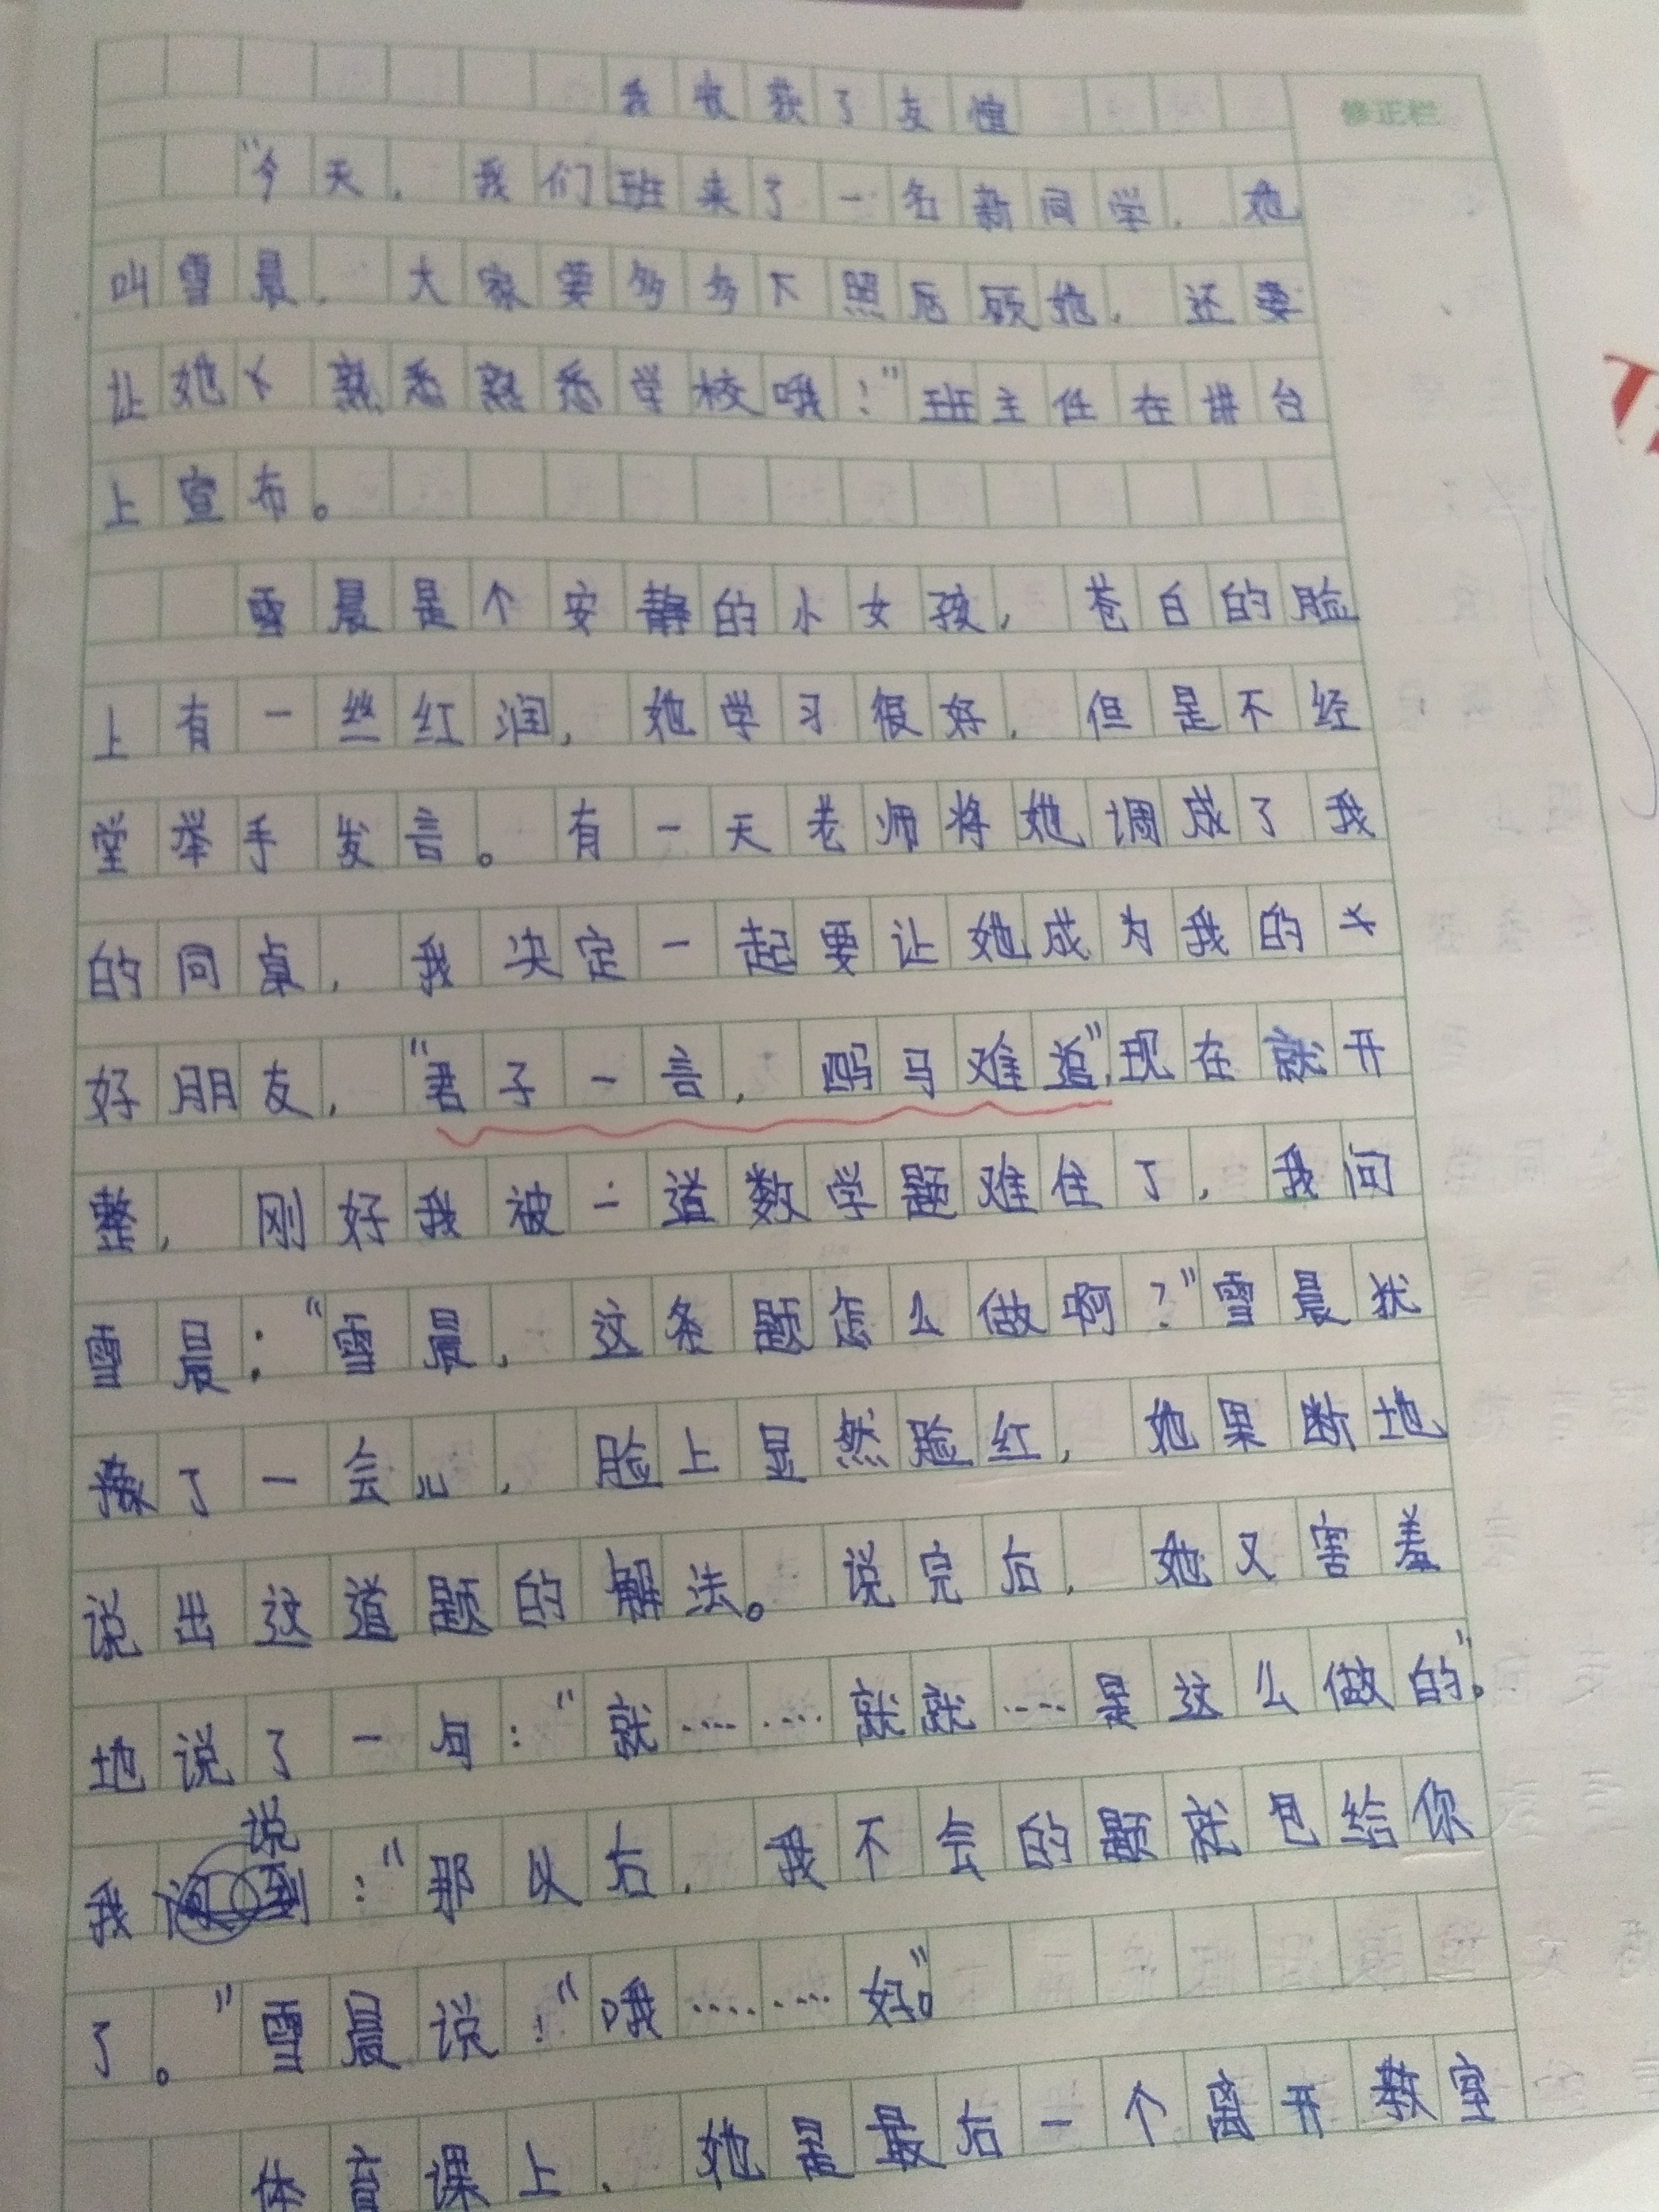 我收获了友情
修正栏
“今天，我们班来了一名新同学，她
叫雪晨，大家要多多照顾她，还要
让她熟悉熟悉学校哦！”班主任在讲台
上宣布。
雪晨是个安静的小女孩，苍白的脸
上有一丝红润，她学习很好，但是不经
堂举手发言。有一天老师将她调成了我
的同桌，我决定一起要让她成为我的
好朋友，“君子一言，驷马难追”，现在就开
整，刚好我被一道数学题难住了，我问
雪晨：“雪晨，这条题怎么做啊？”雪晨犹
豫了一会儿，脸上显然脸红，她果断地
说出这道题的解法。说完后，她又害羞
地说了一句：“就……就就…是这么做的。”
我说：“那以后，我不会的题就包给你
了。”雪晨说：“哦……好。”
体育课上，她是最后一个离开教室